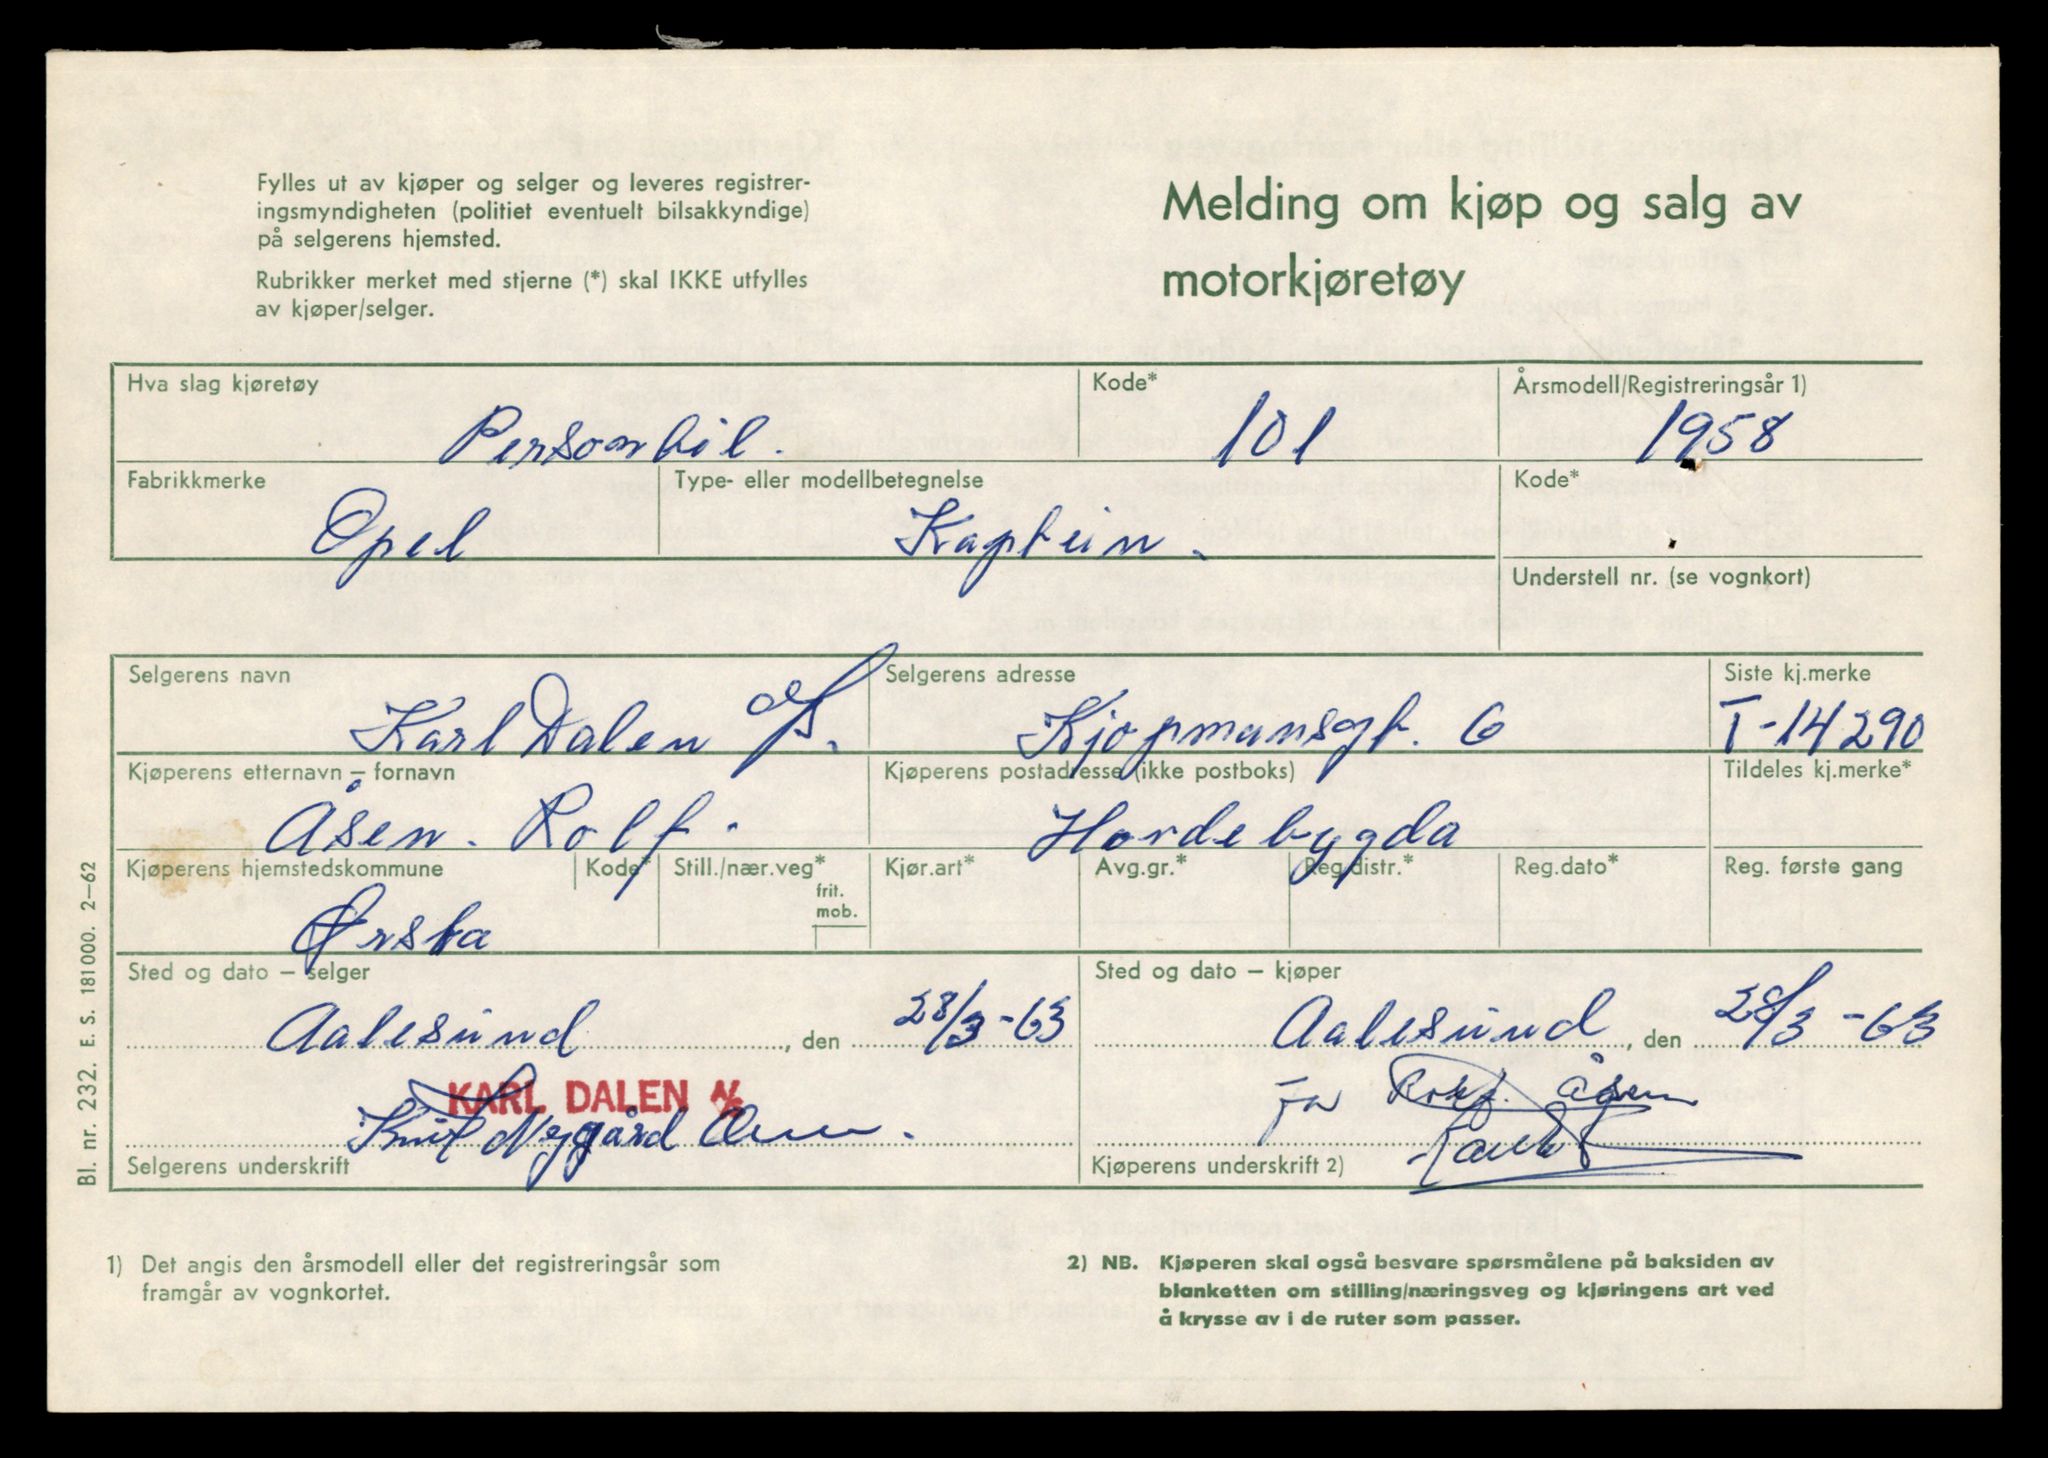 Fylles ut av kjøper og selger og leveres registrer-
ingsmyndigheten (politiet eventuelt bilsakkyndige)
på selgerens hjemsted.
Rubrikker merket med stjerne (*) skal IKKE utfylles
av kjøper/selger.
Melding om kjøp og salg av
motorkjøretøy
Hva slag kjøretøy
Personbil.
Kode*
101
Årsmodell/Registreringsår 1)
1958
Fabrikkmerke
Opel
Type- eller modellbetegnelse
Kaptein.
Kode*
Understell nr. (se vognkort)
Selgerens navn
Karl Dalen A/S.
Selgerens adresse
Kjøpmansgt. 6
Siste kj.merke
T-14290
Kjøperens etternavn – fornavn
Åsen. Rolf.
Kjøperens postadresse (ikke postboks)
Hovdebygda
Tildeles kj.merke*
Kjøperens hjemstedskommune
Ørsta
Kode*
Still./nær.veg*
frit.
mob.
Kjør.art*
Avg.gr.*
Reg.distr.*
Reg.dato*
Reg. første gang
Sted og dato – selger
Aalesund, den 28/3-63
Sted og dato – kjøper
Aalesund, den 28/3-63
KARL DALEN A/S
Knut Nygård
Selgerens underskrift
Rolf. Åsen
Kjøperens underskrift 2)
Bl. nr. 232. E. S. 181 000. 2–62
1) Det angis den årsmodell eller det registreringsår som
framgår av vognkortet.
2) NB. Kjøperen skal også besvare spørsmålene på baksiden av
blanketten om stilling/næringsveg og kjøringens art ved
å krysse av i de ruter som passer.